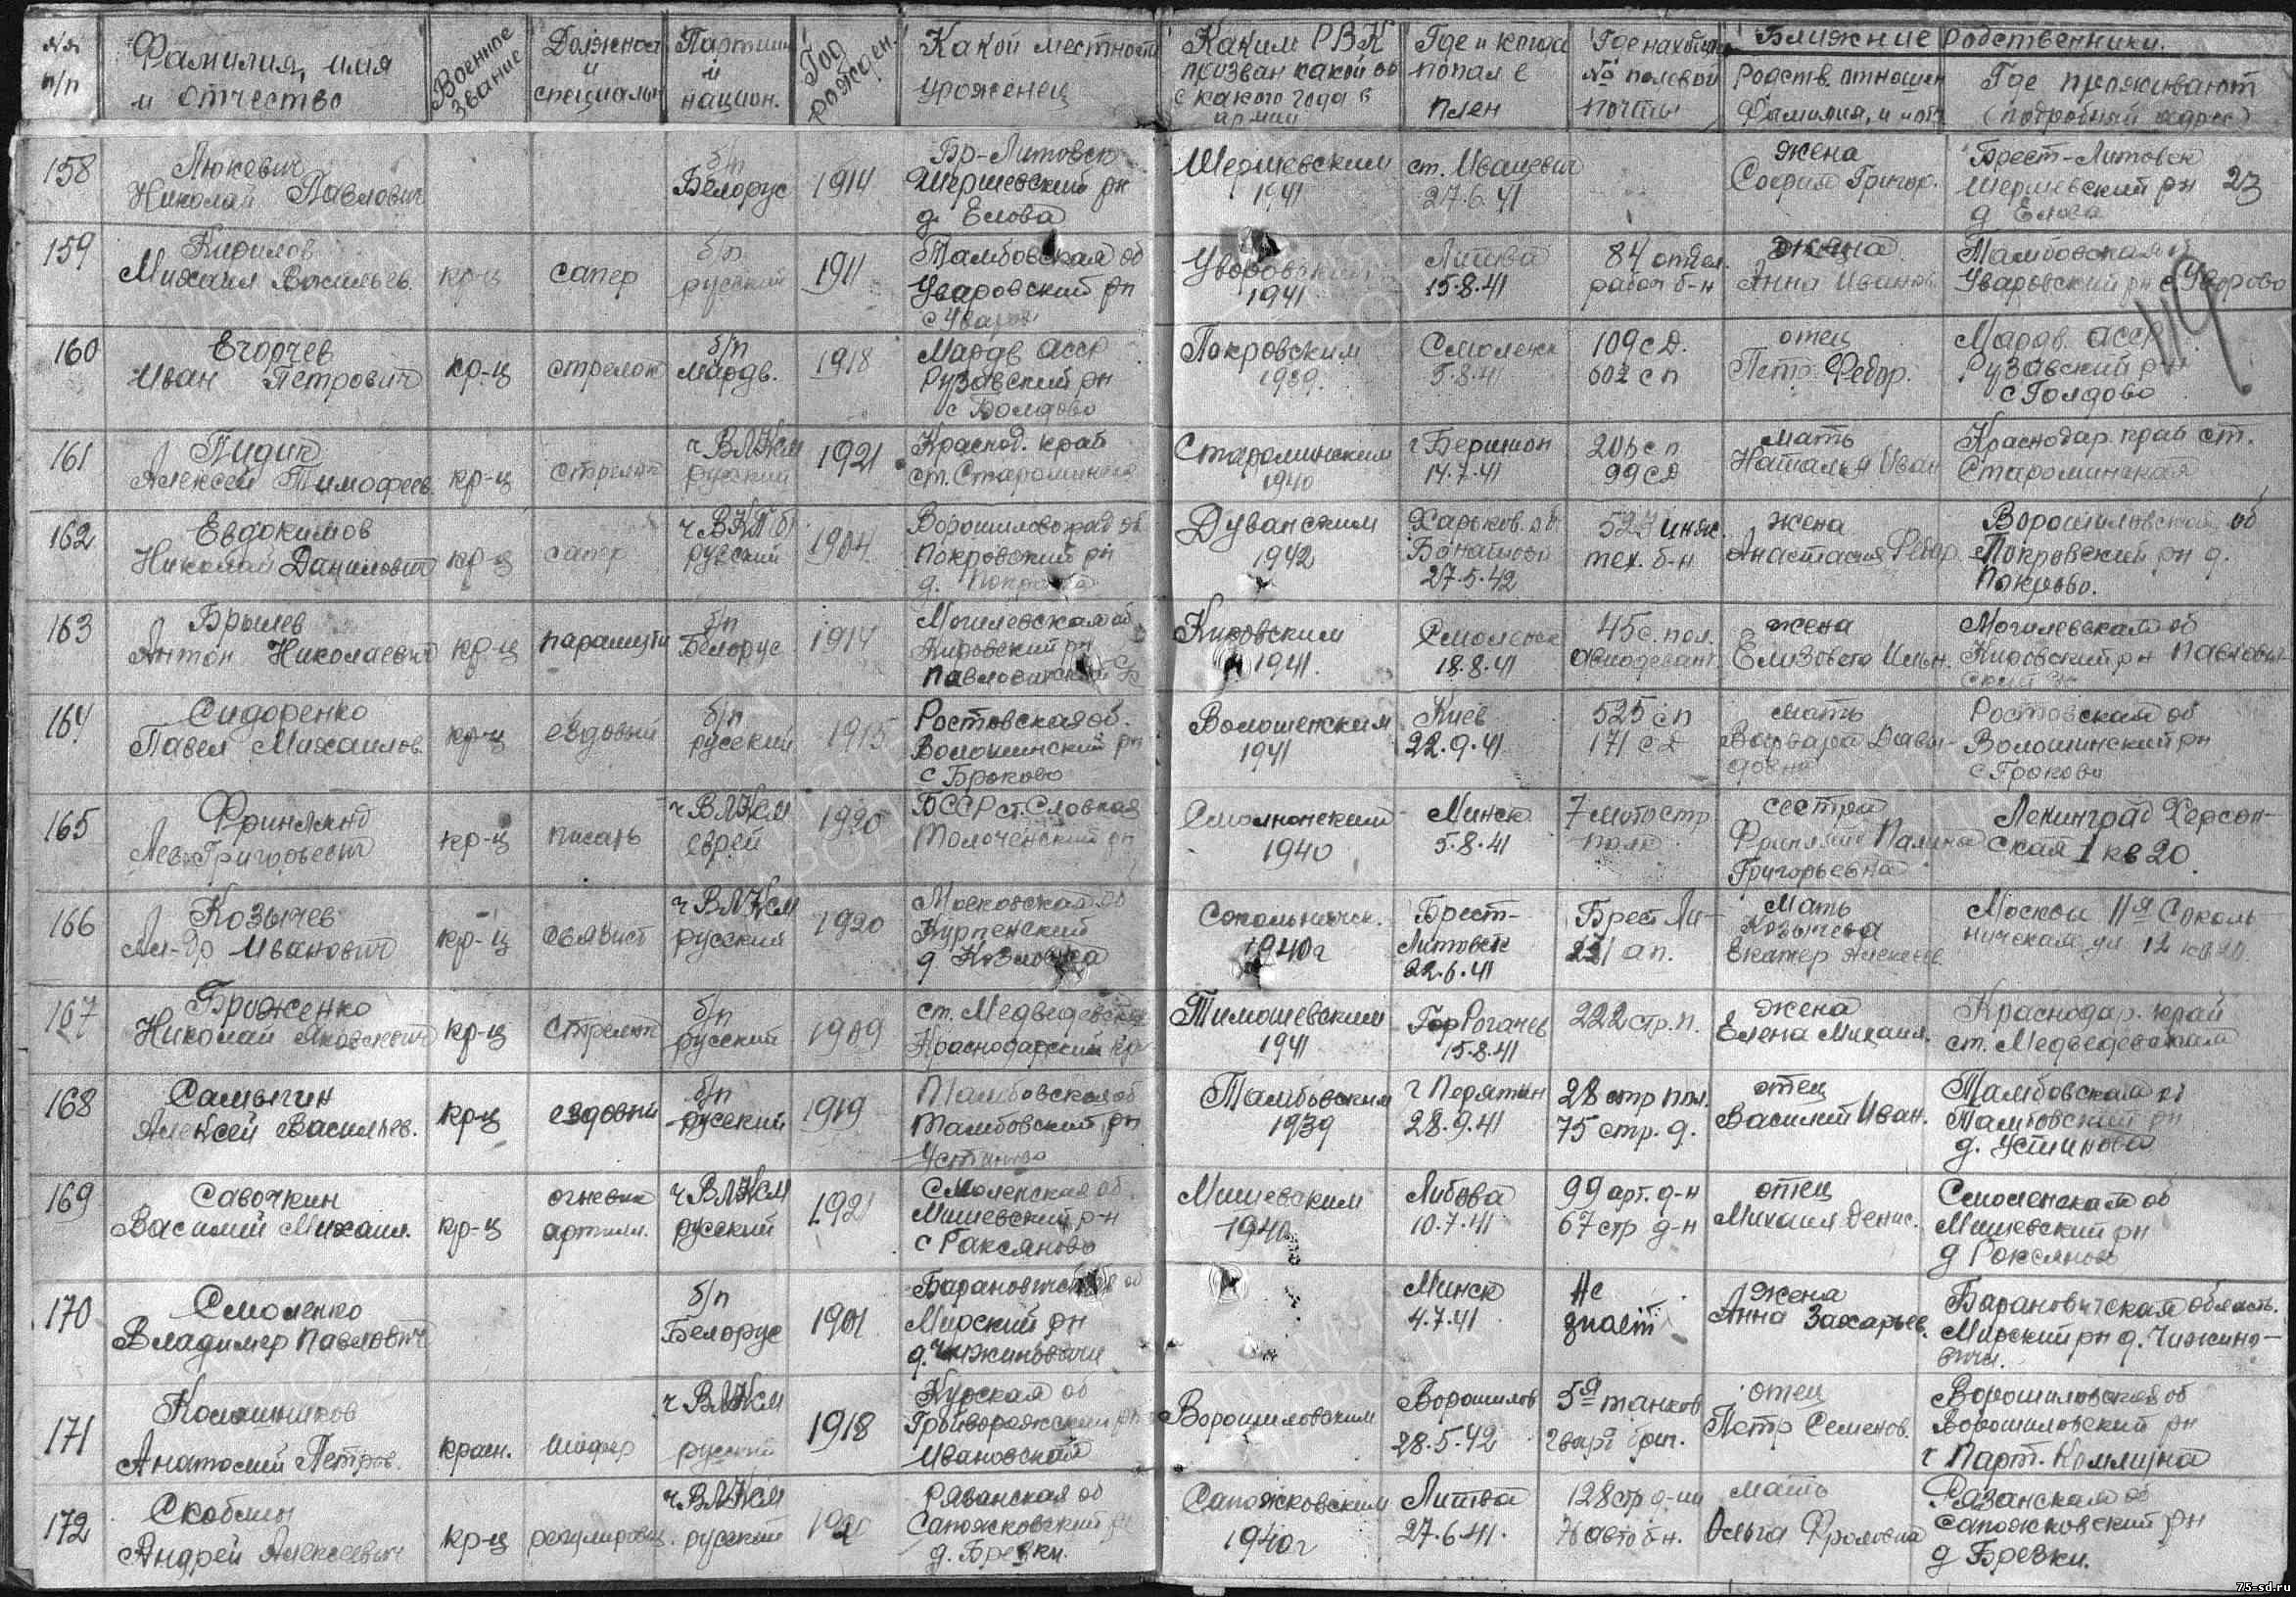 №№ п/п
Фамилия, имя и отчество
Военное звание
Должност и специальн
Партийн и национ.
Год рожден.
Какой местности уроженец
Каким РВК призван какой об с какого года в армии
Где и когда попал в плен
Где находи № полевой почты
Ближние родственники.
Родств. отношен Фамилия, и
Где проживают (подробный адрес)
158 Люкевич Николай Павлович б/п Белорус 1914 Бр-Литовск Шершевский рн д. Елова
Шершевским 1941 ст. Ивацевич 27.6.41 жена София Григор. Брест-Литовск Шершевский рн 23 д Елова
159 Кирилов Михаил Васильев. кр-ц сапер б/п русский 1911 Тамбовская об Уваровский рн
1941 Литва 15.8.41 84 отдел. рабоч б-н жена Анна Иванов. Тамбовская об Уваровский рн с. Уварово
119
160 Егорчев Иван Петрович кр-ц стрелок б/п Мордв. 1918 Мордв АССР Рузавский рн с Болдово
Покровским 1939. Смоленск 5.8.41 109 с.д. 602 с п отец Петр Федор. Мордв. АССР Рузавский рн с Голдово
161 Пидик Алексей Тимофеев. кр-ц стрелок ч ВЛКСМ русский 1921 Краснод. край ст. Староминская
Староминским 1940 14.7.41 206 с п 99 с д мать Наталья Иван Краснодар. край ст. Староминская
162 Евдокимов Николай Данилович кр-ц сапер ч ВКП б русский 1904 Ворошиловоград об Покровский рн
Дуванским 1942 Харьков. об 27.5.42 527 инж. тех. б-н жена Анастасия Федор. Ворошиловская об Покровский рн д. Покрово.
163 Брылев Антон Николаевич кр-ц парашути б/п Белорус 1914 Могилевская об Кировский рн
Кировским 1941. Смоленск 18.8.41 45 с. пол. авиодесант. жена Елизовета Ильн. Могилевская об Кировский рн
164 Сидоренко Павел Михаилов. кр-ц ездовый б/п русский 1915 Ростовская об. Волошинский рн с Броково
1941 Киев 22.9.41 525 сп 171 с д мать Варвара Давы-довна Ростовская об Волошинский рн
165 Лев Григорьевич кр-ц писарь ч ВЛКСМ еврей 1920 БССР Толоченский рн
1940 Минск 5.8.41 7 мотостр полк сестра Григорьевна Ленинград Херсон-ская 1 кв 20
166 Козычев Ал-др Иванович кр-ц связист ч ВЛКСМ русский 1920 Московская об
Сокольнич. 1940г Брест-Литовск 22.6.41 Брест Ли- 221 ап. Мать Козычева Екатер Алексеев. Москва 11я Соколь-ническая ул 12 кв 20.
167 Броженко Николай Яковлевич кр-ц стрелок б/п русский 1909 ст. Медведевская Краснодарский кр
Тимошевским 1941 Гор Рогачев 15.8.41 222 стр. п. жена Елена Михаил. Краснодар. край ст. Медведевская
168 Самыгин Алексей Васильев. кр-ц ездовый б/п русский 1919 Тамбовская об Тамбовский рн Устиново
Тамбовским 1939 г Пирятин 28.9.41 28 стр пол. 75 стр. д. отец Василий Иван. Тамбовская об Тамбовский рн д. Устинова
169 Савочкин Василий Михаил. кр-ц огневик артилл. ч ВЛКСМ русский 1921 Смоленская об. с Раксяново
1940 10.7.41 99 арт. д-н 67 стр д-н отец Михаил Денис. Смоленская об
170 Смоленко Владимер Павлович б/п Белорус 1901 Барановичская об Мирский рн д. Чижиновичи
Минск 4.7.41 Не знает жена Анна Захарьев. Барановичская область. Мирский рн д. Чижино-вичи.
171 Колошников Анатолий Петров. красн. шофер ч ВЛКСМ русский 1918 Курская об Ивановская
Ворошиловским Ворошилов 28.5.42 5я танков гвард бриг. отец Петр Семенов. Ворошиловская об Ворошиловский рн г Парт. Коммуна
172 Скоблин Андрей Алексеевич кр-ц регулировщ. ч ВЛКСМ русский 1920 Рязанская об Сапожковский рн д. Брезки.
Сапожковским 1940г Литва 27.6.41. 128 стр д-ии 76 авто бн. мать Ольга Фроловна Рязанская об Сапожковский рн д Брезки.
75-sd.ru